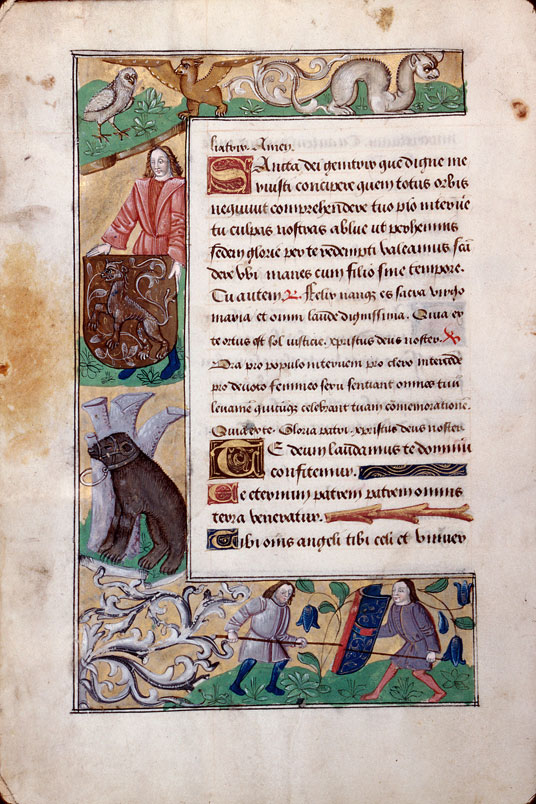 liatow. Amen.
Sancta dei genitow que digne me
ruisti concipere quem totus orbis
nequiuit comprehendere tuo pio interue
tu culpas nostras ablue ut perhennis
sedem glorie per te redempti valeamus scan
dere vbi manes cum filio sine tempore.
Tu autem R. Felix nanqz es sacra virgo
maria et omni laude dignissima. Quia ex
te ortus est sol iusticie. xpristus deus noster. V
Ora pro populo interueni pro clero intercede
pro deuoto femineo sexu sentiant omnes tuum
leuamen quicunqz celebrant tuam comemorationem
Quia ex te. Gloria patri. xpristus deus noster
Te deum laudamus te dominum
confitemur.
Te eternum patrem patrem omnis
terra veneratur.
Tibi omnes angeli tibi celi et vniuer